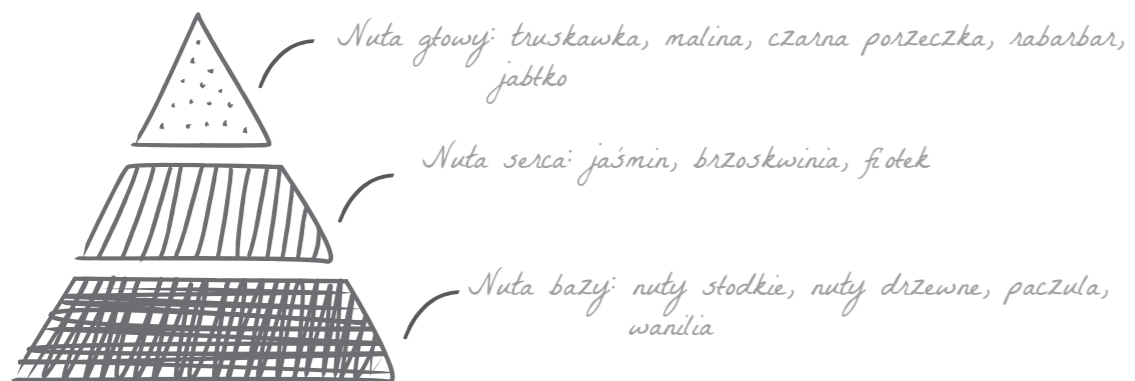 Nuta głowy: truskawka, malina, czarna porzeczka, rabarbar,
jabłko
Nuta serca: jaśmin, brzoskwinia, fiołek
Nuta bazy: nuty słodkie, nuty drzewne, paczula,
wanilia